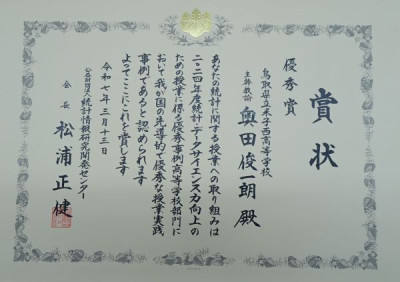 賞状
優秀賞
鳥取県立米子西高等学校
主幹教諭 奥田俊一朗 殿
あなたの統計に関する授業への取り組みは
二〇二四年度統計データサイエンス力向上の
ための授業に係る優秀事例高等学校部門に
おいて我が国の先導的で優秀な授業実践
事例であると認められます
よってここにこれを賞します
令和七年三月十三日
公益財団法人統計情報研究開発センター
会長 松浦正健